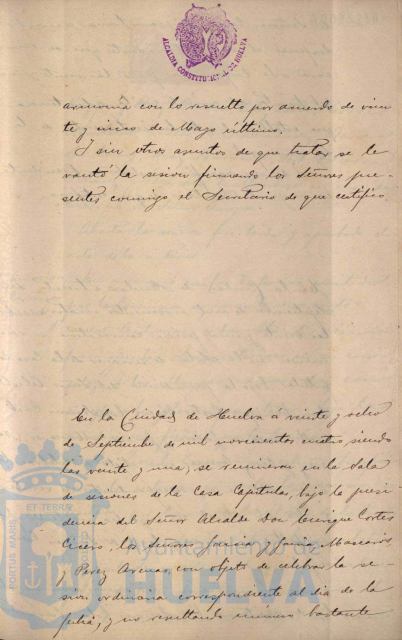 ALCALDIA CONSTITUCIONAL DE HUELVA
armonia con lo resuelto por acuerdo de vein
te y cinco de Mayo último.
Y sin otros asuntos de que tratar se le
vantó la sesion firmando los Señores pre-
sentes conmigo el Secretario de que certifico
En la Ciudad de Huelva á veinte y ocho
de Septiembre de mil novecientos cuatro, siendo
las veinte y una, se reunieron en la Sala
de sesiones de la Casa Capitular, bajo la presi
dencia del Señor Alcalde Don Enrique Cortes
los Señores Garcia y Garcia, Mascaros
y Perez con objeto de celebrar la se-
sion ordinaria correspondiente al dia de la
fecha, y no resultando número bastante
PORTUS MARIS ET TERRAE
Ayuntamiento de
HUELVA